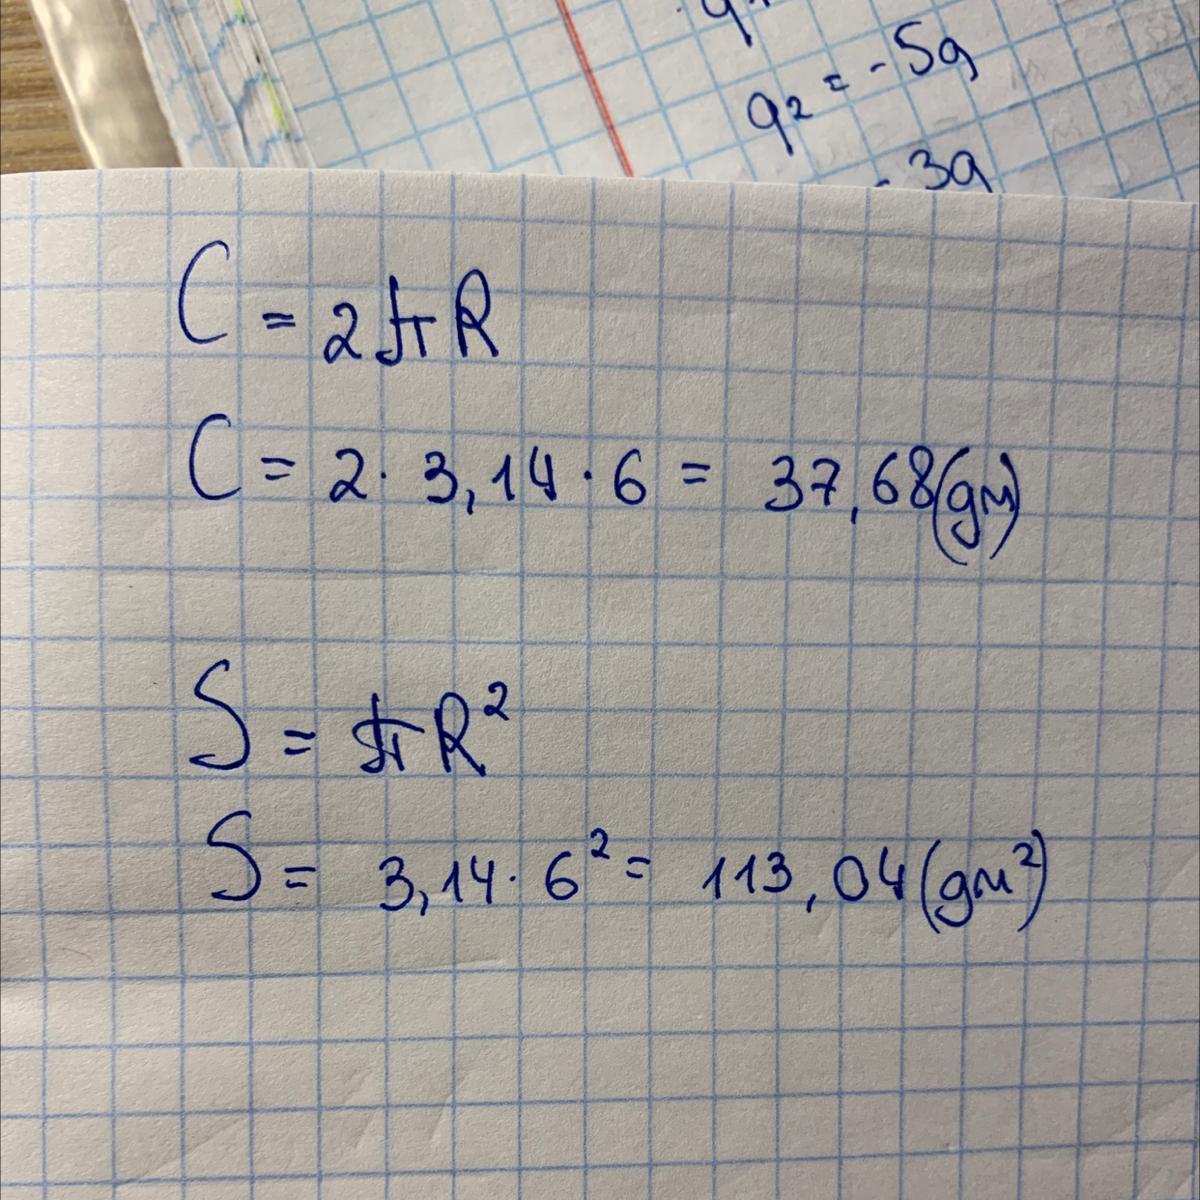 q₂ = -5q
3q
C = 2πR
C = 2 · 3,14 · 6 = 37,68(дм)
S = πR²
S = 3,14 · 6² = 113,04(дм²)